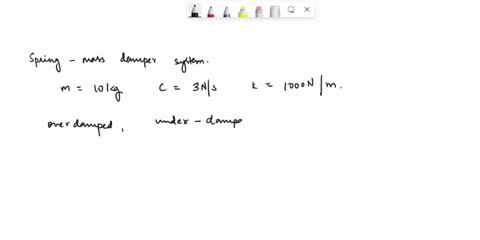 Spring - mass damper system.
m = 10kg C = 3N/s k = 1000N/m.
overdamped, under-dampe